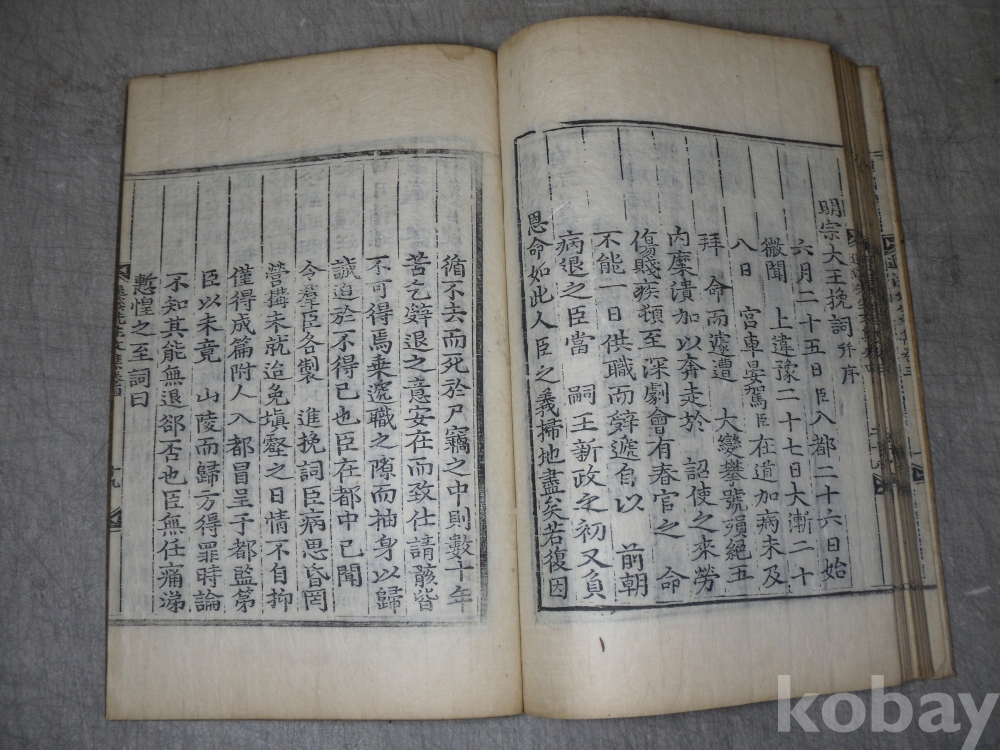 明宗大王挽詞幷序
六月二十五日臣入都二十六日始
微聞 上違豫二十七日大漸二十
八日 宮車晏駕臣在道加病未及
拜 命而遽遭 大變攀號殞絕五
內糜潰加以奔走於 詔使之來勞
傷賤疾頓至深劇會有春官之 命
不能一日供職而辭遞自以 前朝
病退之臣當 嗣王新政之初又負
恩命如此人臣之義掃地盡矣若復因
循不去而死於尸竊之中則數十年
苦乞辭退之意安在而致仕請骸皆
不可得焉乘遞職之隙而抽身以歸
誠迫於不得已也臣在都中已聞
令羣臣各製 進挽詞臣病思昏罔
營搆未就迨免塡壑之日情不自抑
僅得成篇附人入都冒呈于都監第
臣以未竟 山陵而歸方得罪時論
不知其能無退郤否也臣無任痛涕
慙惶之至詞曰
十九
kobay